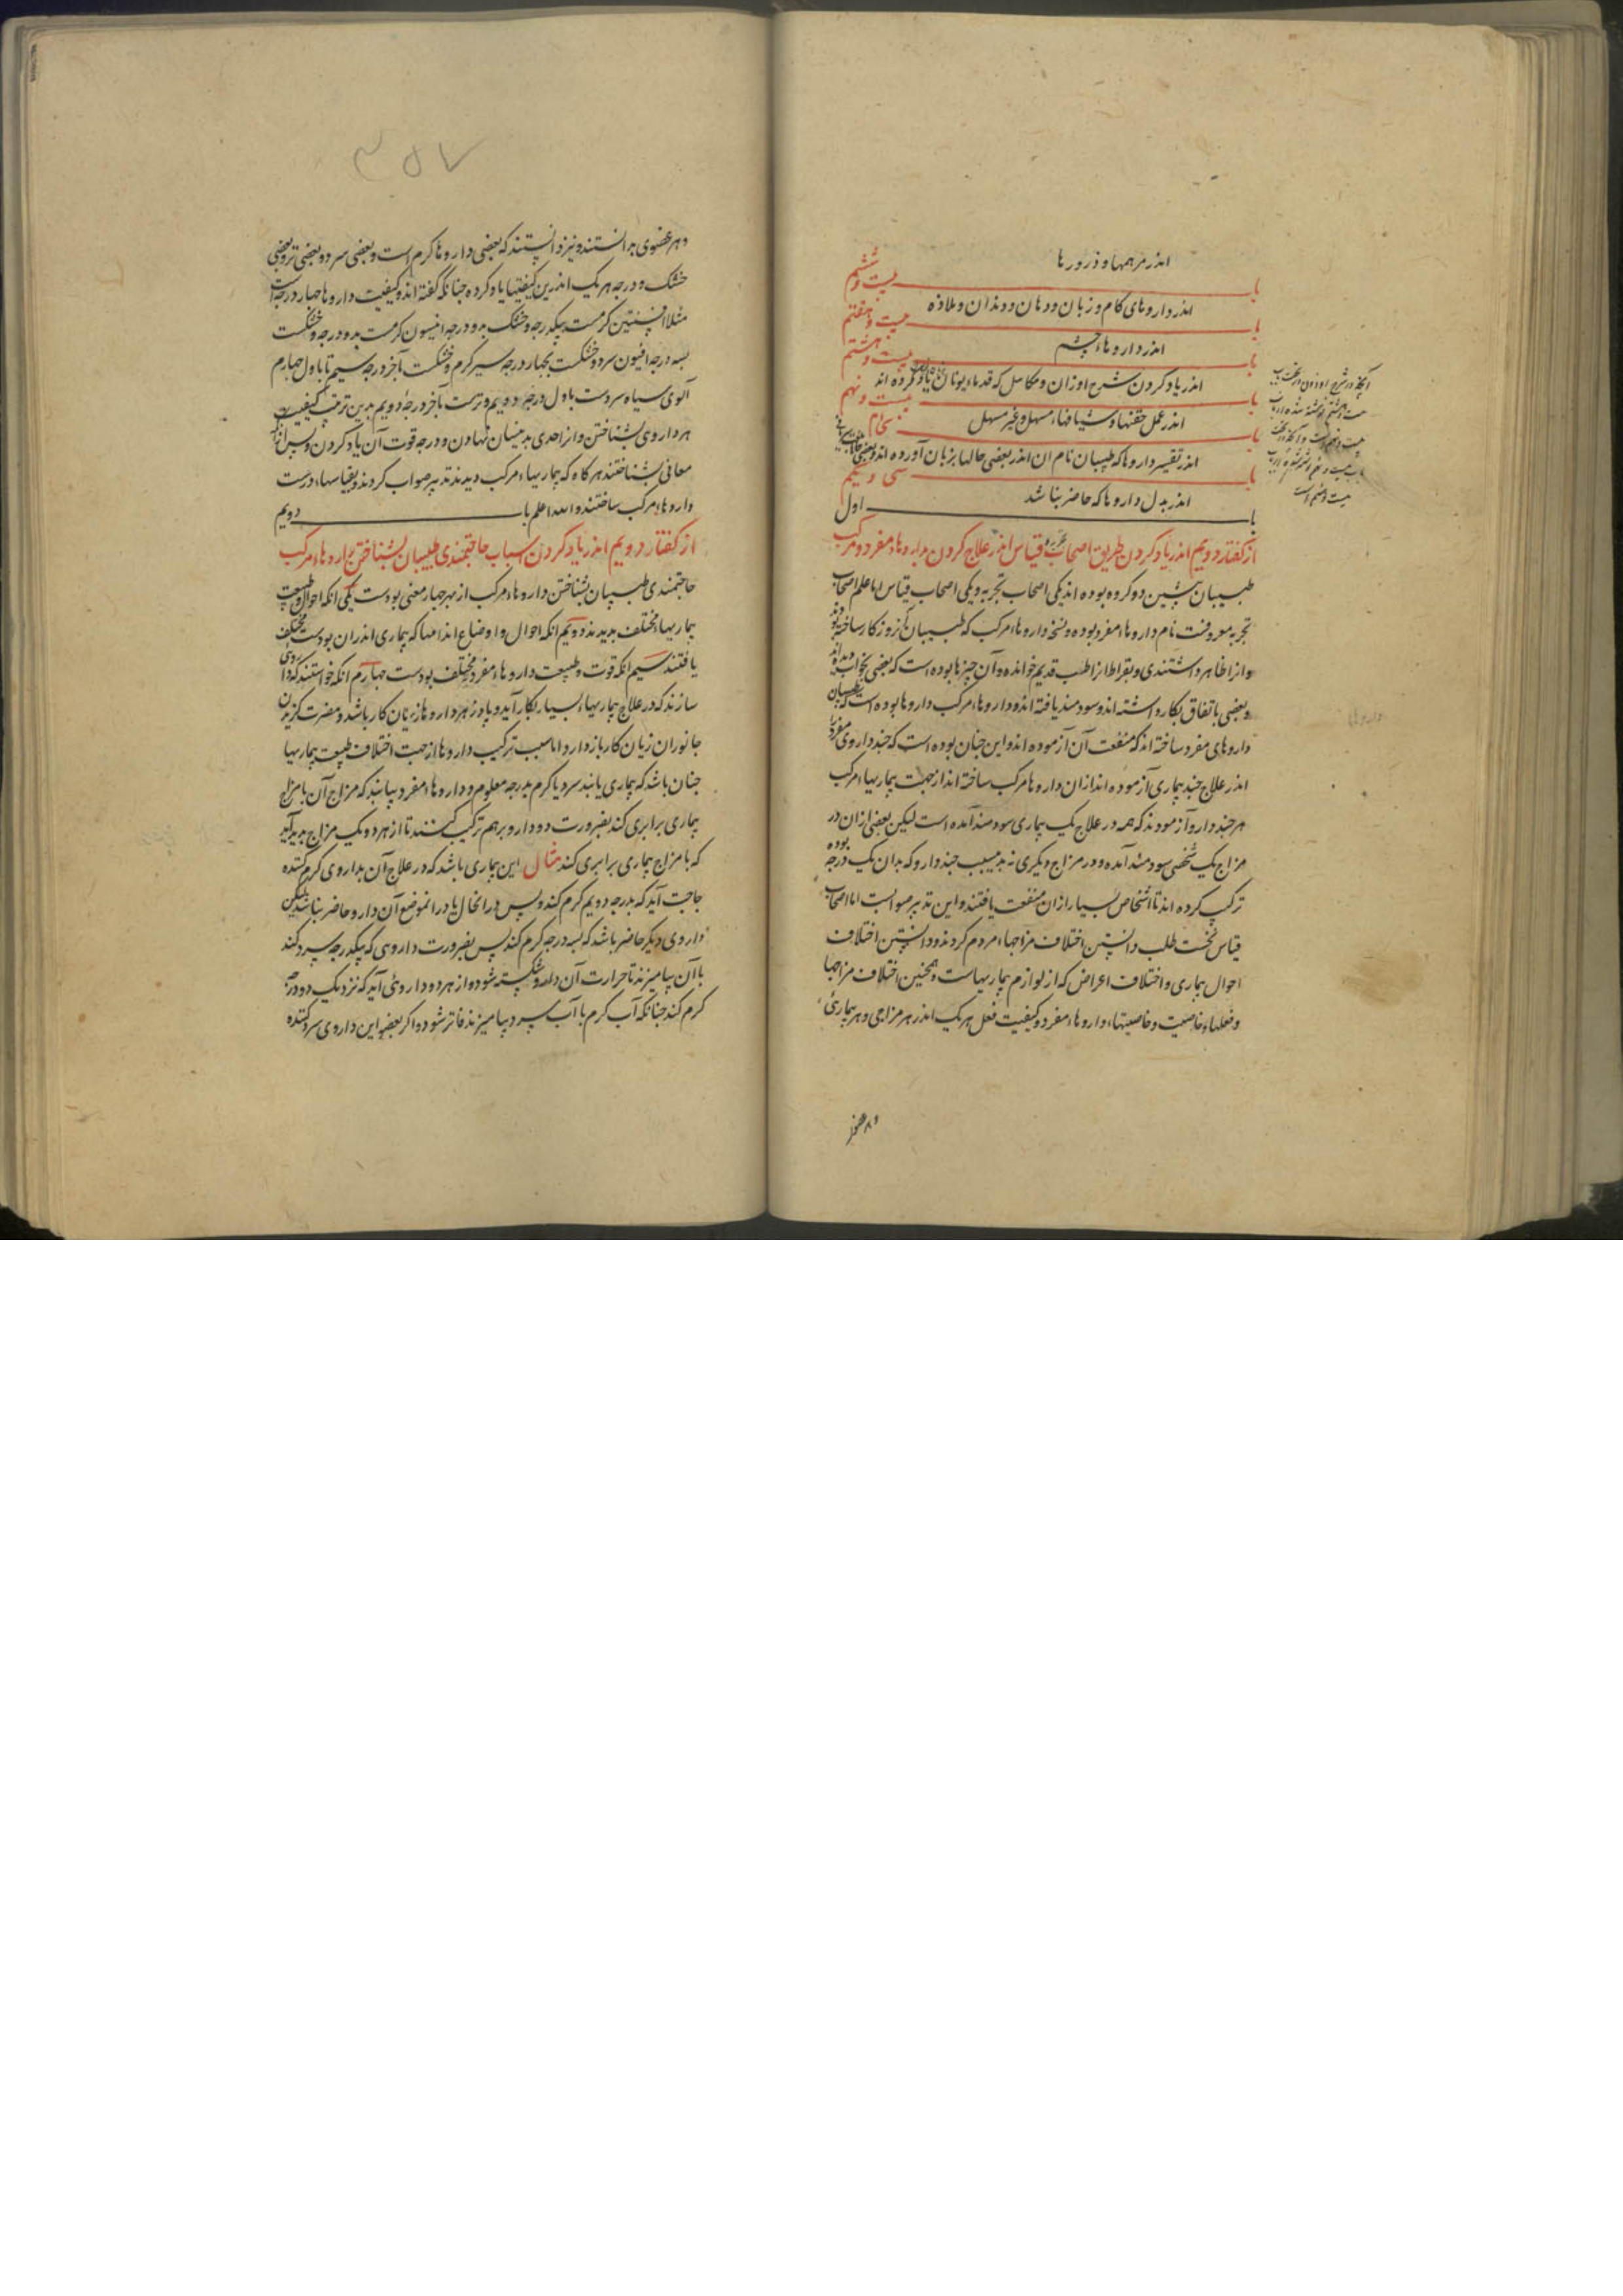 اندر مرهمها و ذرورها
باب بیست و ششم
اندر داروهای کام و زبان و دهان و دندان و ملازه
باب بیست و هفتم
اندر داروهاء چشم
باب بیست و هشتم
اندر یاد کردن شرح اوزان و مکاییل که قدماء یونان یاد کرده اند
باب بیست و نهم
اندر عمل حقنها و شیافهاء مسهل و غیر مسهل
باب سی ام
اندر تفسیر داروها که طبیبان نام ان اندر بعضی حالها بزبان آورده اند
باب سی و یکم
اندر بدل داروها که حاضر نباشد
باب اول
از کفتار دویم اندر یاد کردن طریق اصحاب تجربه و قیاس اندر علاج کردن بداروهاء مفرد و مرکب
طبیبان پیشین دو کروه بوده اند یکی اصحاب تجربه و یکی اصحاب قیاس اما علم اصحاب
تجربه معرفت نام داروهاء مفرد بوده و نسخه داروهاء مرکب که طبیبان بزروزکار ساخته بودند
و انرا ظاهر داشتندی و بقراط انرا طب قدیم خوانده و آن چیزها بوده است که بعضی بخواب دیده اند
و بعضی باتفاق بکار داشته اند و سودمند یافته اند و داروهاء مرکب داروها بوده است که طبیبان
داروهای مفرد ساخته اند که منفعت آن آزموده اند و این جنان بوده است که جند داروی مفرد را
اندر علاج جند بیماری آزموده اند ازان داروها مرکب ساخته اند از جهت بیماریهاء مرکب
هر جند دارو آزمودند که همه در علاج یک بیماری سودمند آمده است لیکن بعضی ازان در
مزاج یک شخص سودمند آمده و در مزاج دیکری نه بدین سبب جند دارو که بدان یک درجه بوده
ترکیب کرده اند تا اشخاص بسیار ازان منفعت یافتند و این تدبیر صوابست اما اصحاب
قیاس نخست طلب دانستن اختلاف مزاجهاء مردم کردند و دانستن اختلاف
احوال بیماری و اختلاف اعراض که از لوازم بیماریهاست و همجنین اختلاف مزاجها
و فعلهاء خاصیت و خاصیتهاء داروهاء مفرد و کیفیت فعل هر یک اندر هر مزاجی و هر بیماری
و هر عضو
۳۵۷
و هر عضوی بدانستند و نیز دانستند که بعضی داروها کرم است و بعضی سرد و بعضی تر و بعضی
خشک و درجه هر یک اندرین کیفیتها یاد کرده جنانکه کفته اند و کیفیت داروها جهار درجه است
مثلا افسنتین کرمست بیکدرجه و خشک بدو درجه انیسون کرمست بدو درجه و خشکست
بسه درجه افیون سرد و خشکست بجهار درجه سیر کرم و خشکست بآخر درجه سیم تا باول جهارم
آلوی سیاه سردست باول درجه دویم و ترست بآخر درجه دویم بدین ترتیب کیفیت
هر داروی بشناختن و انرا حدی بدینسان نهادن و درجه قوت آن یاد کردن و پس
معانی بشناختند هر کاه که بیماریهاء مرکب دیدند تدبیر صواب کردند و بقیاسهاء درست
داروهاء مرکب ساختند والله اعلم باب دویم
از کفتار دویم اندر یاد کردن اسباب حاجتمندی طبیبان بشناختن داروهاء مرکب
حاجتمندی طبیبان بشناختن داروهاء مرکب از بهر جهار معنی بودست یکی انکه احوال و طبیعت
بیماریها مختلف بدیدند دویم انکه احوال و اوضاع اندامها که بیماری اندران بودست مختلف
یافتند سیم انکه قوت و طبیعت داروهاء مفرد مختلف بودست جهارم انکه خواستند که داروی
سازند که در علاج بیماریهاء بسیار بکار آید و پادزهر داروهاء زیان کار باشد و مضرت کزیدن
جانوران زیان کار بازدارد اما سبب ترکیب داروها از جهت اختلاف طبیعت بیماریها
جنان باشد که بیماری یابند سرد یا کرم بدرجه معلوم و داروهاء مفرد نیابند که مزاج آن با مزاج
بیماری برابری کند بضرورت دو دارو برهم ترکیب کنند تا از هر دو یک مزاج بدید آید
که با مزاج بیماری برابری کند مثال این بیماری باشد که در علاج آن بداروی کرم کننده
حاجت آید که بدرجه دویم کرم کند و پس در انحال یا در انموضع آن دارو حاضر نباشد لیکن
داروی دیکر حاضر باشد که بسه درجه کرم کند پس بضرورت داروی که بیکدرجه سرد کند
با آن بیامیزند تا حرارت آن دارو شکسته شود و از هر دو داروئی آید که نزدیک دو درجه
کرم کند جنانکه آب کرم با آب سرد بیامیزند فاتر شود و اکر بعضو این داروی سرد کننده